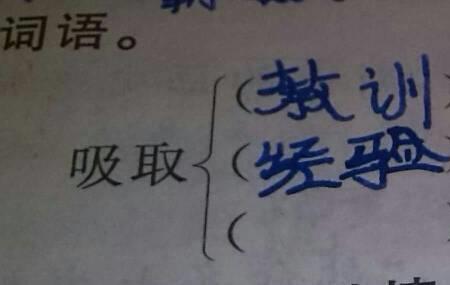 词语。
吸取
(教训)
(经验
(